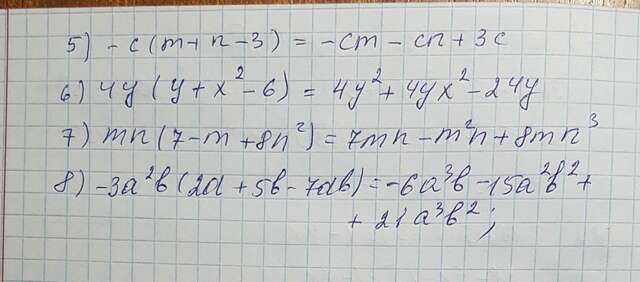 5) -c(m+n-3) = -cm - cn + 3c
6) 4y(y+x²-6) = 4y²+4yx²-24y
7) mn(7-m+8n²) = 7mn-m²n+8mn³
8) -3a²b(2a+5b-7ab) = -6a³b-15a²b²+
+21a³b²;